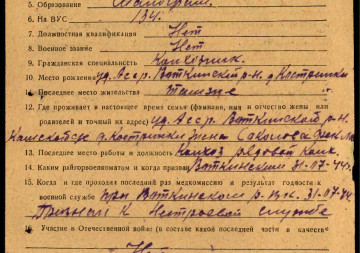 5. Образование Малограм.
6. На ВУС 134.
7. Должностная квалификация Нет
8. Военное звание Нет
9. Гражданская специальность Колхозник.
10. Место рождения уд. Асср. Воткинский р-н. д Кострюшки
11. Последнее место жительства
12. Где проживает в настоящее время семья (фамилия, имя и отчество жены или
родителей и точный их адрес) уд. Асср. Воткинский р-н.
д Кострюшки жена
13. Последнее место работы и должность Колхоз рядовой колх.
14. Каким райгорвоенкоматом и когда призван Воткинским 31-07-44
15. Когда и где проходил последний раз медкомиссию и результат годности к
военной службе при Воткинском р. в. к. 31-07-44
Признан к нестроевой службе
16. Участие в Отечественной войне (в составе какой последней части и качестве